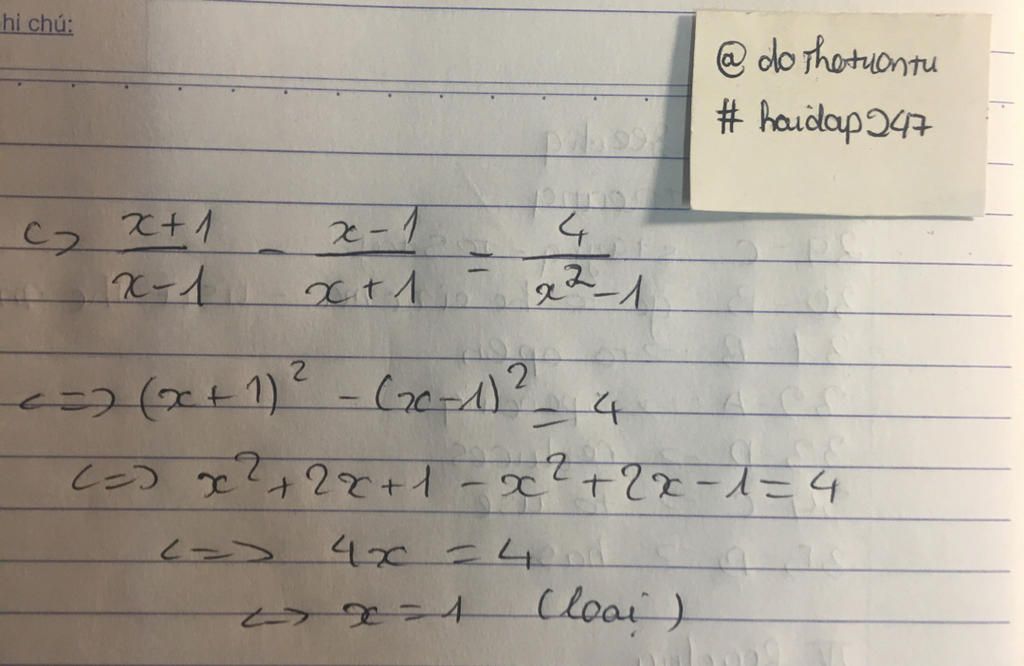 hi chú:
@ dothetuantu
# hoidap247
c> \frac{x+1}{x-1} - \frac{x-1}{x+1} = \frac{4}{x^2-1}
<=> (x+1)^2 - (x-1)^2 = 4
<=> x^2+2x+1-x^2+2x-1=4
<=> 4x = 4
<=> x = 1 (loại)